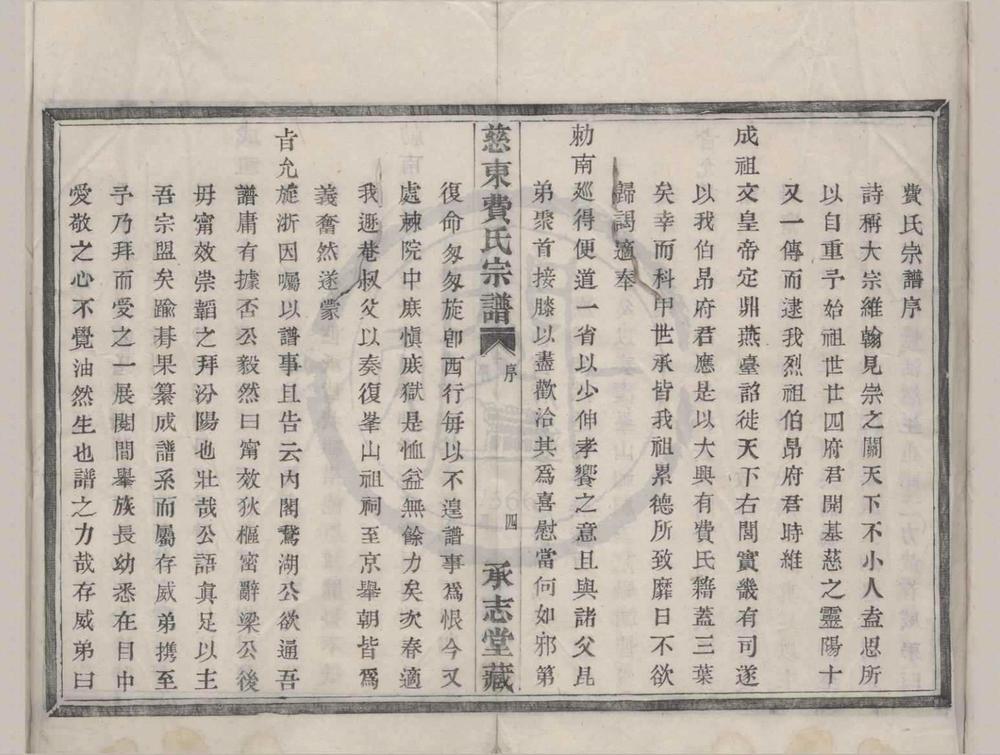 費氏宗譜序
詩稱大宗維翰見崇之關天下不小人盍思所
以自重予始祖世廿四府君開基慈之靈陽十
又一傳而逮我烈祖伯昂府君時維
成祖文皇帝定鼎燕臺詔徙天下右閭實畿有司遂
以我伯昂府君應是以大興有費氏籍蓋三葉
矣幸而科甲世承皆我祖累德所致靡日不欲
歸謁適奉
勅南廵得便道一省以少伸孝饗之意且與諸父昆
弟聚首接膝以盡歡洽其爲喜慰當何如邪第
慈東費氏宗譜 序 四 承志堂藏
復命匆匆旋卽西行每以不遑譜事爲恨今又
處棘院中庶愼庶獄是恤益無餘力矣次春適
我遜菴叔父以奏復峯山祖祠至京舉朝皆爲
義奮然遂蒙
旨允旋浙因囑以譜事且告云內閣鵞湖公欲通吾
譜庸有據否公毅然曰甯效狄樞密辭梁公後
毋甯效崇韜之拜汾陽也壯哉公語眞足以主
吾宗盟矣踰朞果纂成譜系而屬存威弟携至
予乃拜而受之一展閱間舉族長幼悉在目中
愛敬之心不覺油然生也譜之力哉存威弟曰